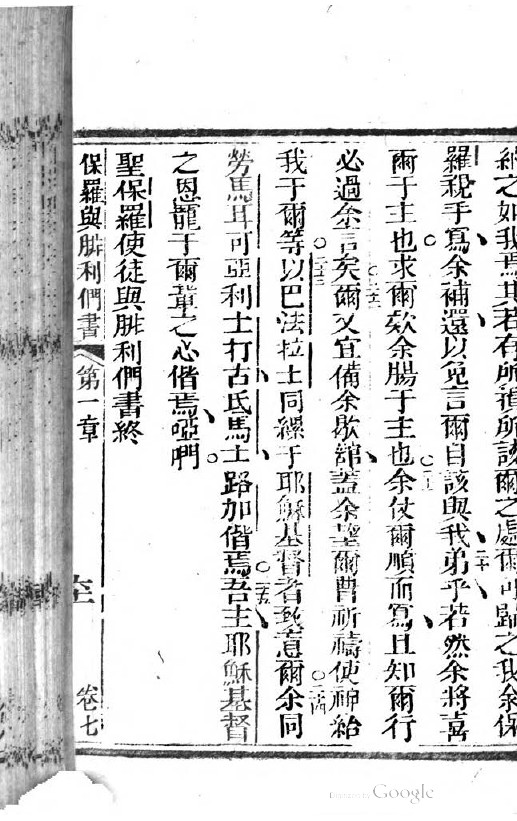 納之如我焉其若存所損所該爾之處爾可歸之我余保
羅親手寫余補還以免言爾自該與我弟乎若然余將喜
爾于主也求爾欸余腸于主也余仗爾順而寫且知爾行
必過余言矣爾又宜備余歇舘蓋余望爾曹祈禱使神給
我于爾等以巴法拉士同縲于耶穌基督者致意爾余同
勞馬耳可亞利士打古氐馬士路加偕焉吾主耶穌基督
之恩寵于爾輩之心偕焉啞們。
聖保羅使徒與腓利們書終
保羅與腓利們書 第一章 卷七
Digitized by Google